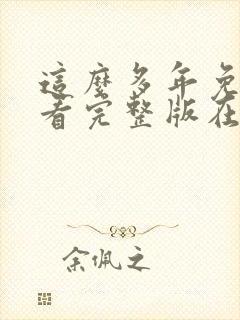 這麼多年免
看完整版在
余佩之